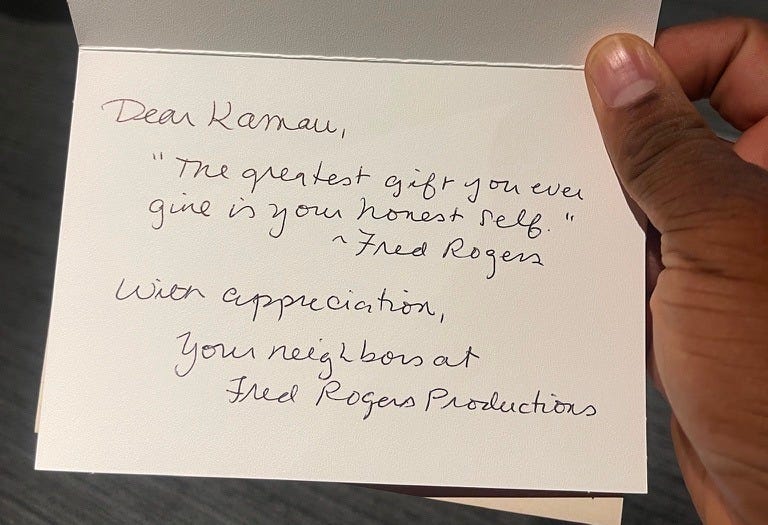 Dear Kamau,
"The greatest gift you ever
give is your honest self."
~Fred Rogers
With appreciation,
Your neighbors at
Fred Rogers Productions